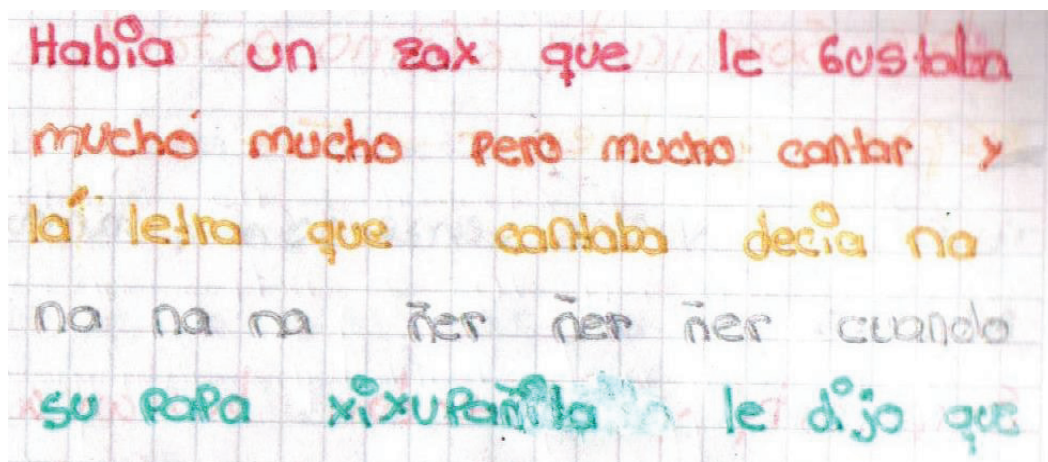 Había un zax que le Gustaba
mucho mucho pero mucho cantar y
la letra que cantaba decía na
na na na ñer ñer ñer cuando
su papa xixupañila le dijo que